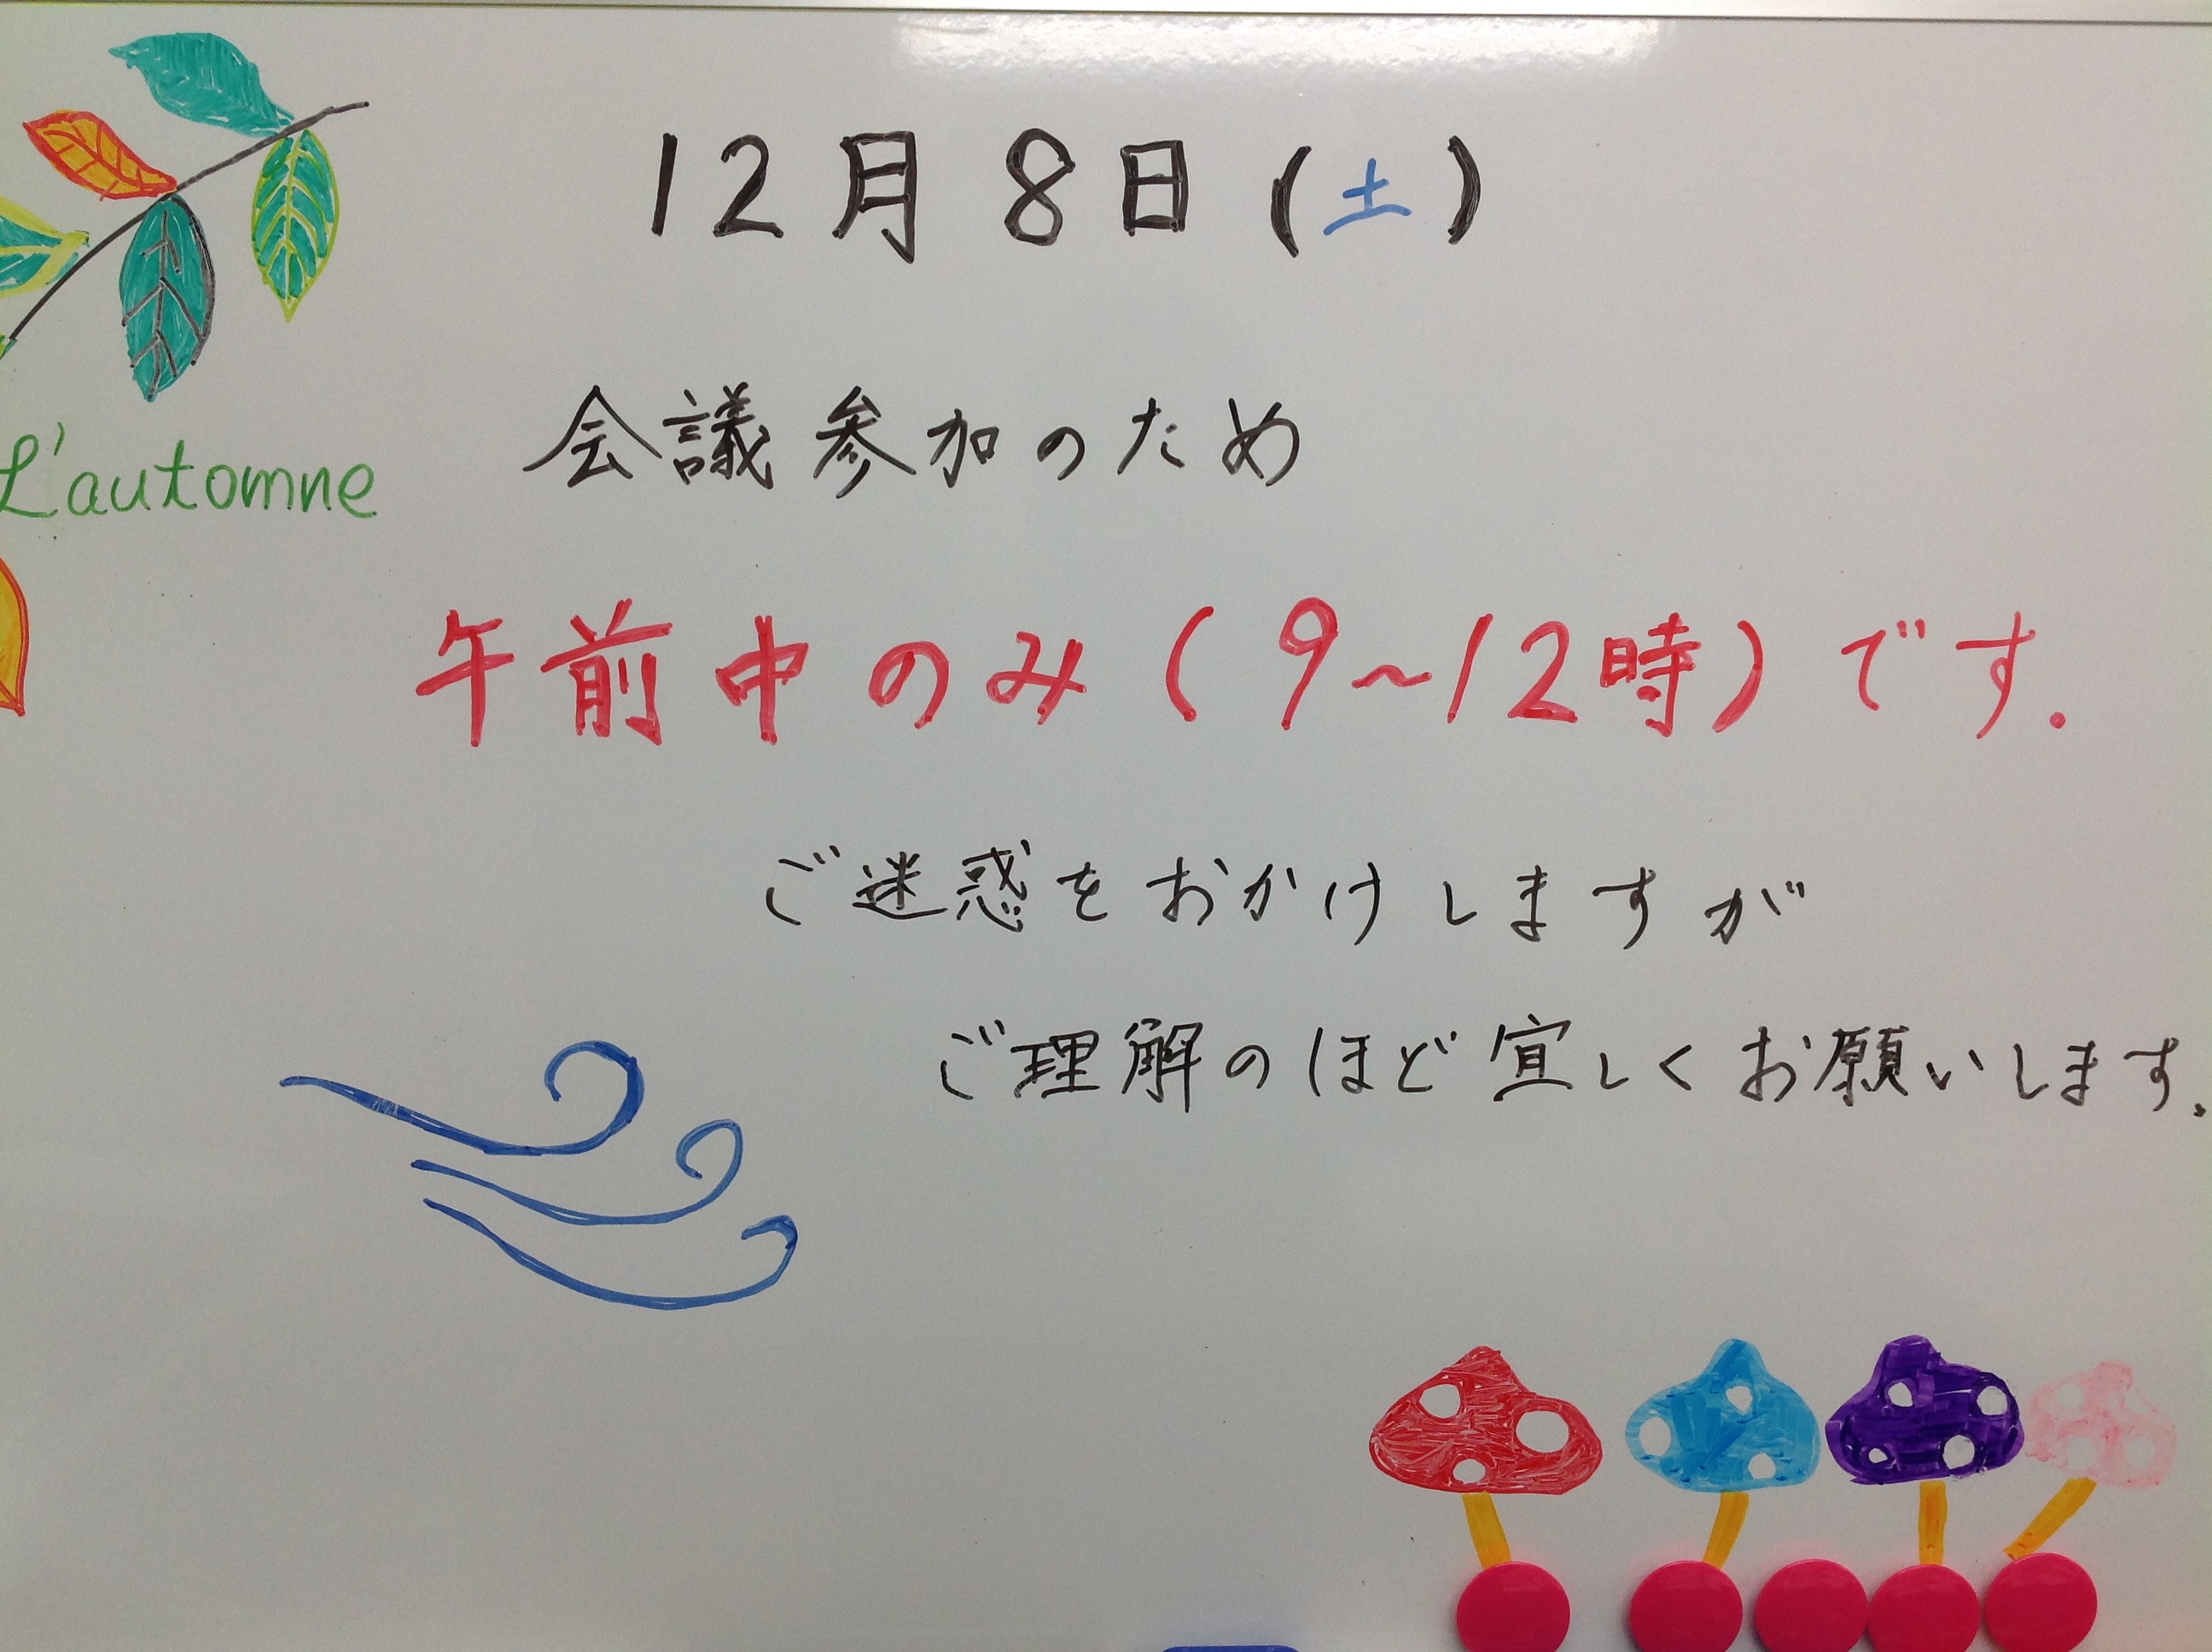 12月8日(土)
会議参加のため
L'automne
午前中のみ(9~12時)です.
ご迷惑をおかけしますが
ご理解のほど宜しくお願いします.